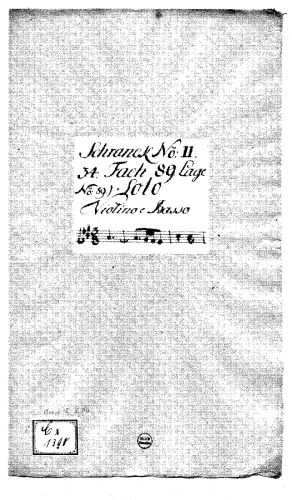 Schranck No: II.
34. Fach 89 Lage
No: 89) Solo
Violino e Basso
Cx
1398